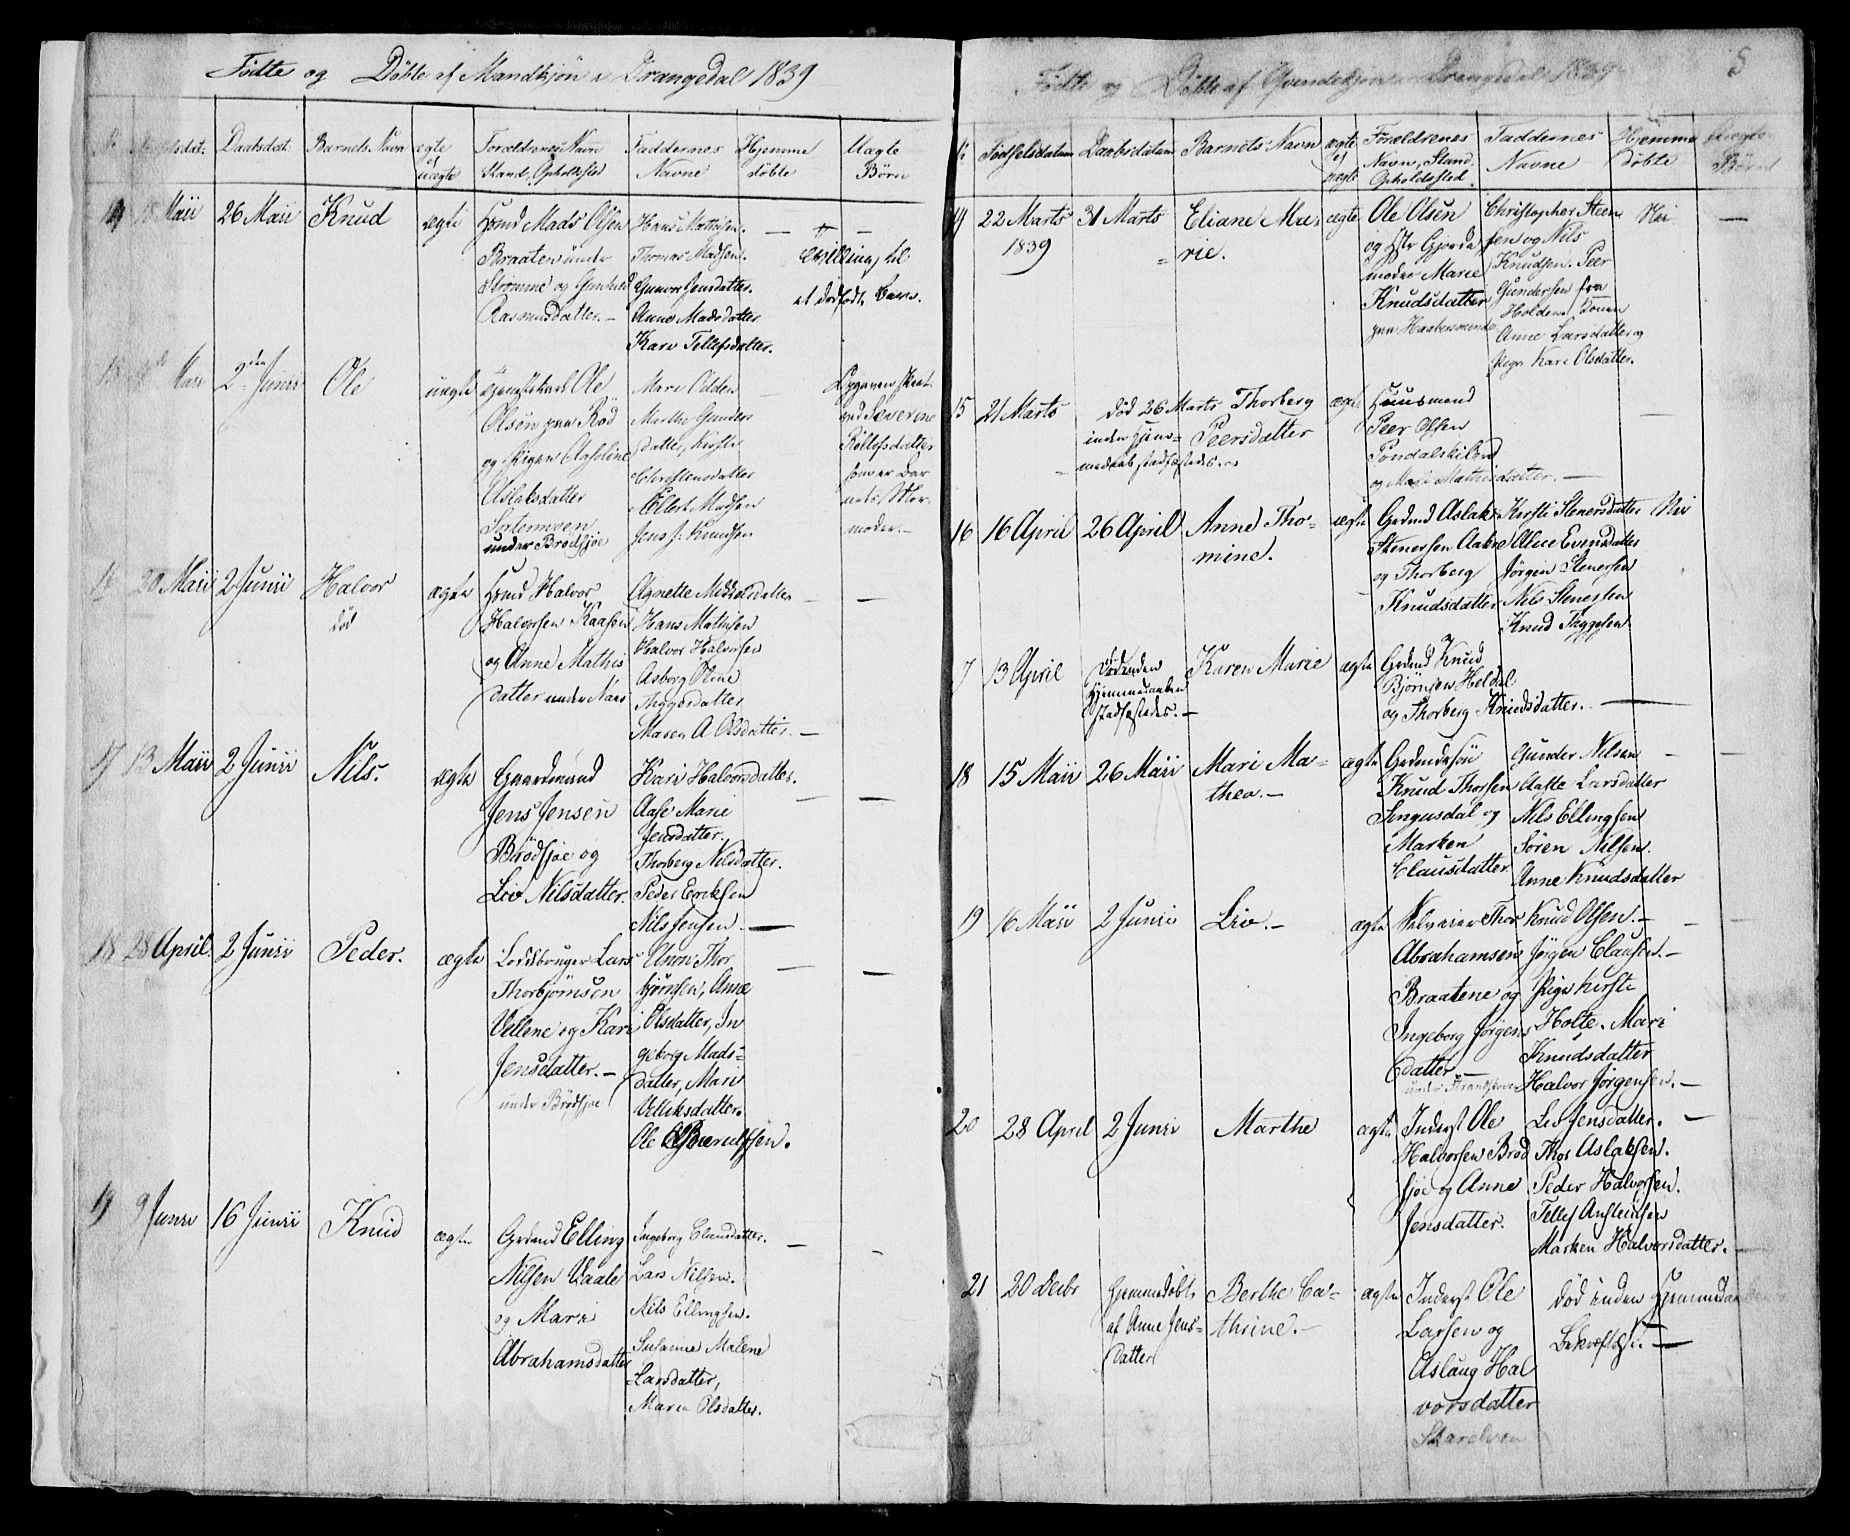 Födte og Döbte af Mandkjön i Drangedal 1839
Daabsdat. Barnets Navn ægte el uægte Forældrenes Navn Stand, Opholdsted Faddernes Navne Hjemme döbte Uægte Börn
14 18 Maii 26 Maii Knud ægte
Hsmd Mads Olsen
Braaten under
Strömme og Gunhild
Rasmusdatter. –
Hans Mathisen.
Thomas Madsen.
Gunvor Jensdatter.
Anne Madsdatter
Kari Tellefsdatter.
til
et dödfödt Barn.
15 Maii 2den Junii Ole uægte
Ole
Olsen paa Röd
og Pigen Aasoline
Aslaksdatter
under Brödsjöe
Mari Odden
Marthe Gunders
datter, Kirstie
Christensdatter
Ellert Madsen
Jens J. Knudsen
ved Severine
Rollefsdatter
som er Bar
nets Mor
moder. –
16 20 Maii 2 Junii Halvor
död
ægte
Hsmd Halvor
Halvorsen Kaasen
og Anne Mathis
datter under Næs
Agnette
Hans Mathisen
Halvor Halvorsen
Asborg Oline
Tryggesdatter
Maren A Olsdatter. –
17 13 Maii 2 Junii Nils. ægte
Gaardmand
Jens Jensen
Brödsjöe og
Liv Nilsdatter.
Kari Halvorsdatter.
Aase Marie
Jensdatter.
Thorberg Nilsdatter.
Peder Ericksen
Nils Jensen. –
18 28 April. 2 Junii Peder. ægte
Lodsbruger Lars
Thorbjörnsen
Vellene og Kari
Jensdatter. –
under Brödsjöe
Anon Thor
björnsen, Anne
Olsdatter, In
geborg Mads=
datter, Mari
Velliksdatter
Ole
19 9 Junii 16 Junii Knud ægte
Grdmd Elling
Nilsen Vaale
og Mari
Abrahamsdatter
Ingeborg Clausdatter.
Lars Nilsen.
Nils Ellingsen.
Susanne Malene
Larsdatter,
Maren Olsdatter.
Födte og Döbte af Qvindekjön i Drangedal 1839 5
Födselsdatum Daabsdatum Barnets Navn ægte el uægte Forældrenes Navn, Stand. Opholdssted. Faddernes Navne Hjemme döbte Uægte Börn
14 22 Marts 1839 31 Marts Eliane Ma=
rie.
ægte
Ole Olsen
og Marie
Knudsdatter
Christopher Steen
sen og Nils
Knudsen. Peer
Gundersen fra
Holden.
Anne Larsdatter og
Pige Kari Olsdatter.
Nei
15 21 Marts död 26 Marts Thorberg
inden Hjem=
medaab stadfæstedes.
Peersdatter
ægte
Huusmand
Peer Olsen
og Mari Mathisdatter. –
16 16 April 26 April Anne Tho=
mine.
ægte
Grdmd Aslak
Stenersen Aakre
og Thorberg
Knudsdatter
Kirsti Stenersdatter
Alice Evensdatter
Jörgen Stenersen
Nils Stenersen
Knud Tryggesen.
Nei
7 13 April Död inden
Hjemmedaaben
stadfæstedes. –
Karen Marie ægte
Grdmd Knud
Björnsen Heldal
og Thorberg Knudsdatter. –
18 15 Maii 26 Maii Mari Ma=
thea. –
ægte
Grdmdssön
Knud Thorsen
Singusdal og
Marken
Clausdatter
Gunder Nilsen
Aaste Larsdatter
Nils Ellingsen
Sören Nilsen.
Anne Knudsdatter
19 16 Maii 2 Junii Liv. – ægte
Thor
Abrahamsen
Braatene og
Ingeborg Jörgens
datter. –
Knud Olsen. –
Jörgen Clausen. –
Pige Kirsti
Holte. Mari
Knudsdatter
Halvor Jörgensen. –
20 28 April 2 Junii Marthe ægte
Inderst Ole
Halvorsen Bröd
sjöe og Anne
Jensdatter.
Liv Jensdatter.
Thor Aslaksen.
Peder Halvorsen.
Tellef Ansteinsen
Marken Halvorsdatter. –
21 20 Decbr Hjemmedöbt
af Anne Jens=
datter
Berthe Ca=
thrine. –
ægte
Inderst Ole
Larsen og
Aslaug Hal
vorsdatter
Död inden Hjemmedaaben